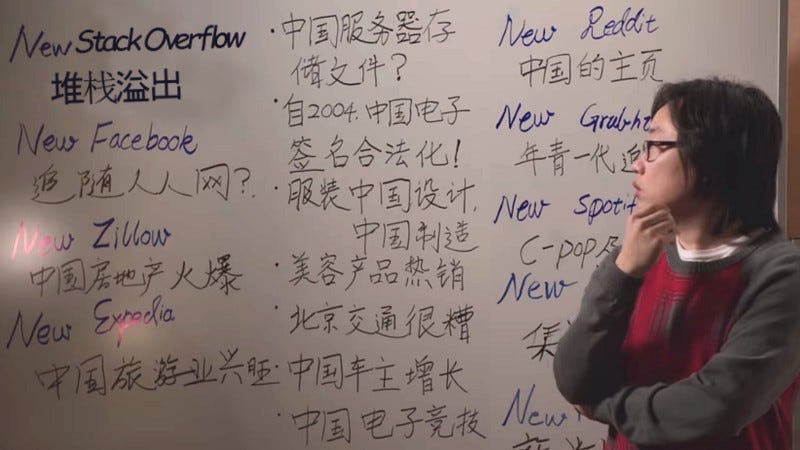 New Stack Overflow
堆栈溢出
New Facebook
追随人人网?
New Zillow
中国房地产火爆
New Expedia
中国旅游业兴旺
·中国服务器存
储文件?
·自2004.中国电子
签名合法化!
·服装中国设计,
中国制造
·美容产品热销
·北京交通很糟
·中国车主增长
·中国电子竞技
New Reddit
中国的主页
New
年青一代追
New Spotif
C-pop
New
集
New